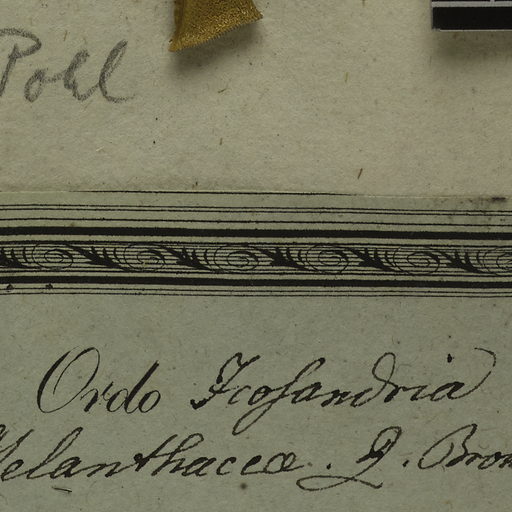 Pohl
Ordo Icosandria
Melanthaceæ. R. Brow